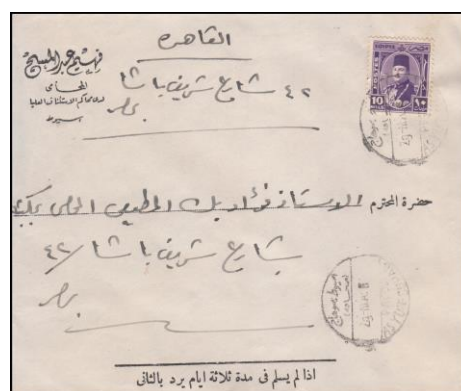 القاهرة
فهيم عبد المسيح
المحامى
لدى محاكم الاستئناف العليا
٤٢ شارع شريف باشا
بمصر
POSTES
10
١٠
حضرة المحترم الاستاذ فؤاد بك
بشارع شريف باشا / ٤٢
بمصر
اذا لم يسلم فى مدة ثلاثة ايام يرد بالثانى